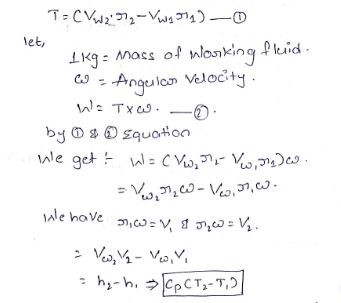 T = (Vw2·r2 - Vw1 r1) — ①
let,
1kg = Mass of Working fluid.
ω = Angular Velocity.
W = T×ω. — ②.
by ① & ② Equation
We get :- W = (Vw2 r2 - Vw1 r1) ω.
= Vw2 r2 ω - Vw1 r1 ω.
We have r1ω = V1 & r2ω = V2.
= Vw2 V2 - Vw1 V1
= h2 - h1 ⇒ Cp (T2 - T1)